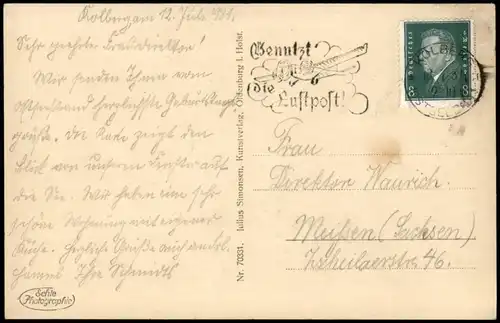 Kolbergam 12. Juli 1931.
Sehr geehrte Frau Direktor!
Wir senden Ihnen vom
Ostseestrand herzlichste Geburtstags-
grüße. Die Karte zeigt den
Blick von unserem Fenster auf
die See. Wir haben eine sehr
schöne Wohnung mit eigener
Küche. Herzliche Grüße auch an
Ihre Schmidts
Echte
Photographie
Nr. 70331. Julius Simonsen, Kunstverlag, Oldenburg i. Holst.
Benutzt
die Luftpost!
KOLBERG
OSTSEEBAD
Deutsches Reich
8 8
Frau
Direktor Waurich.
Meißen (Sachsen)
Zscheilaerstr. 46.